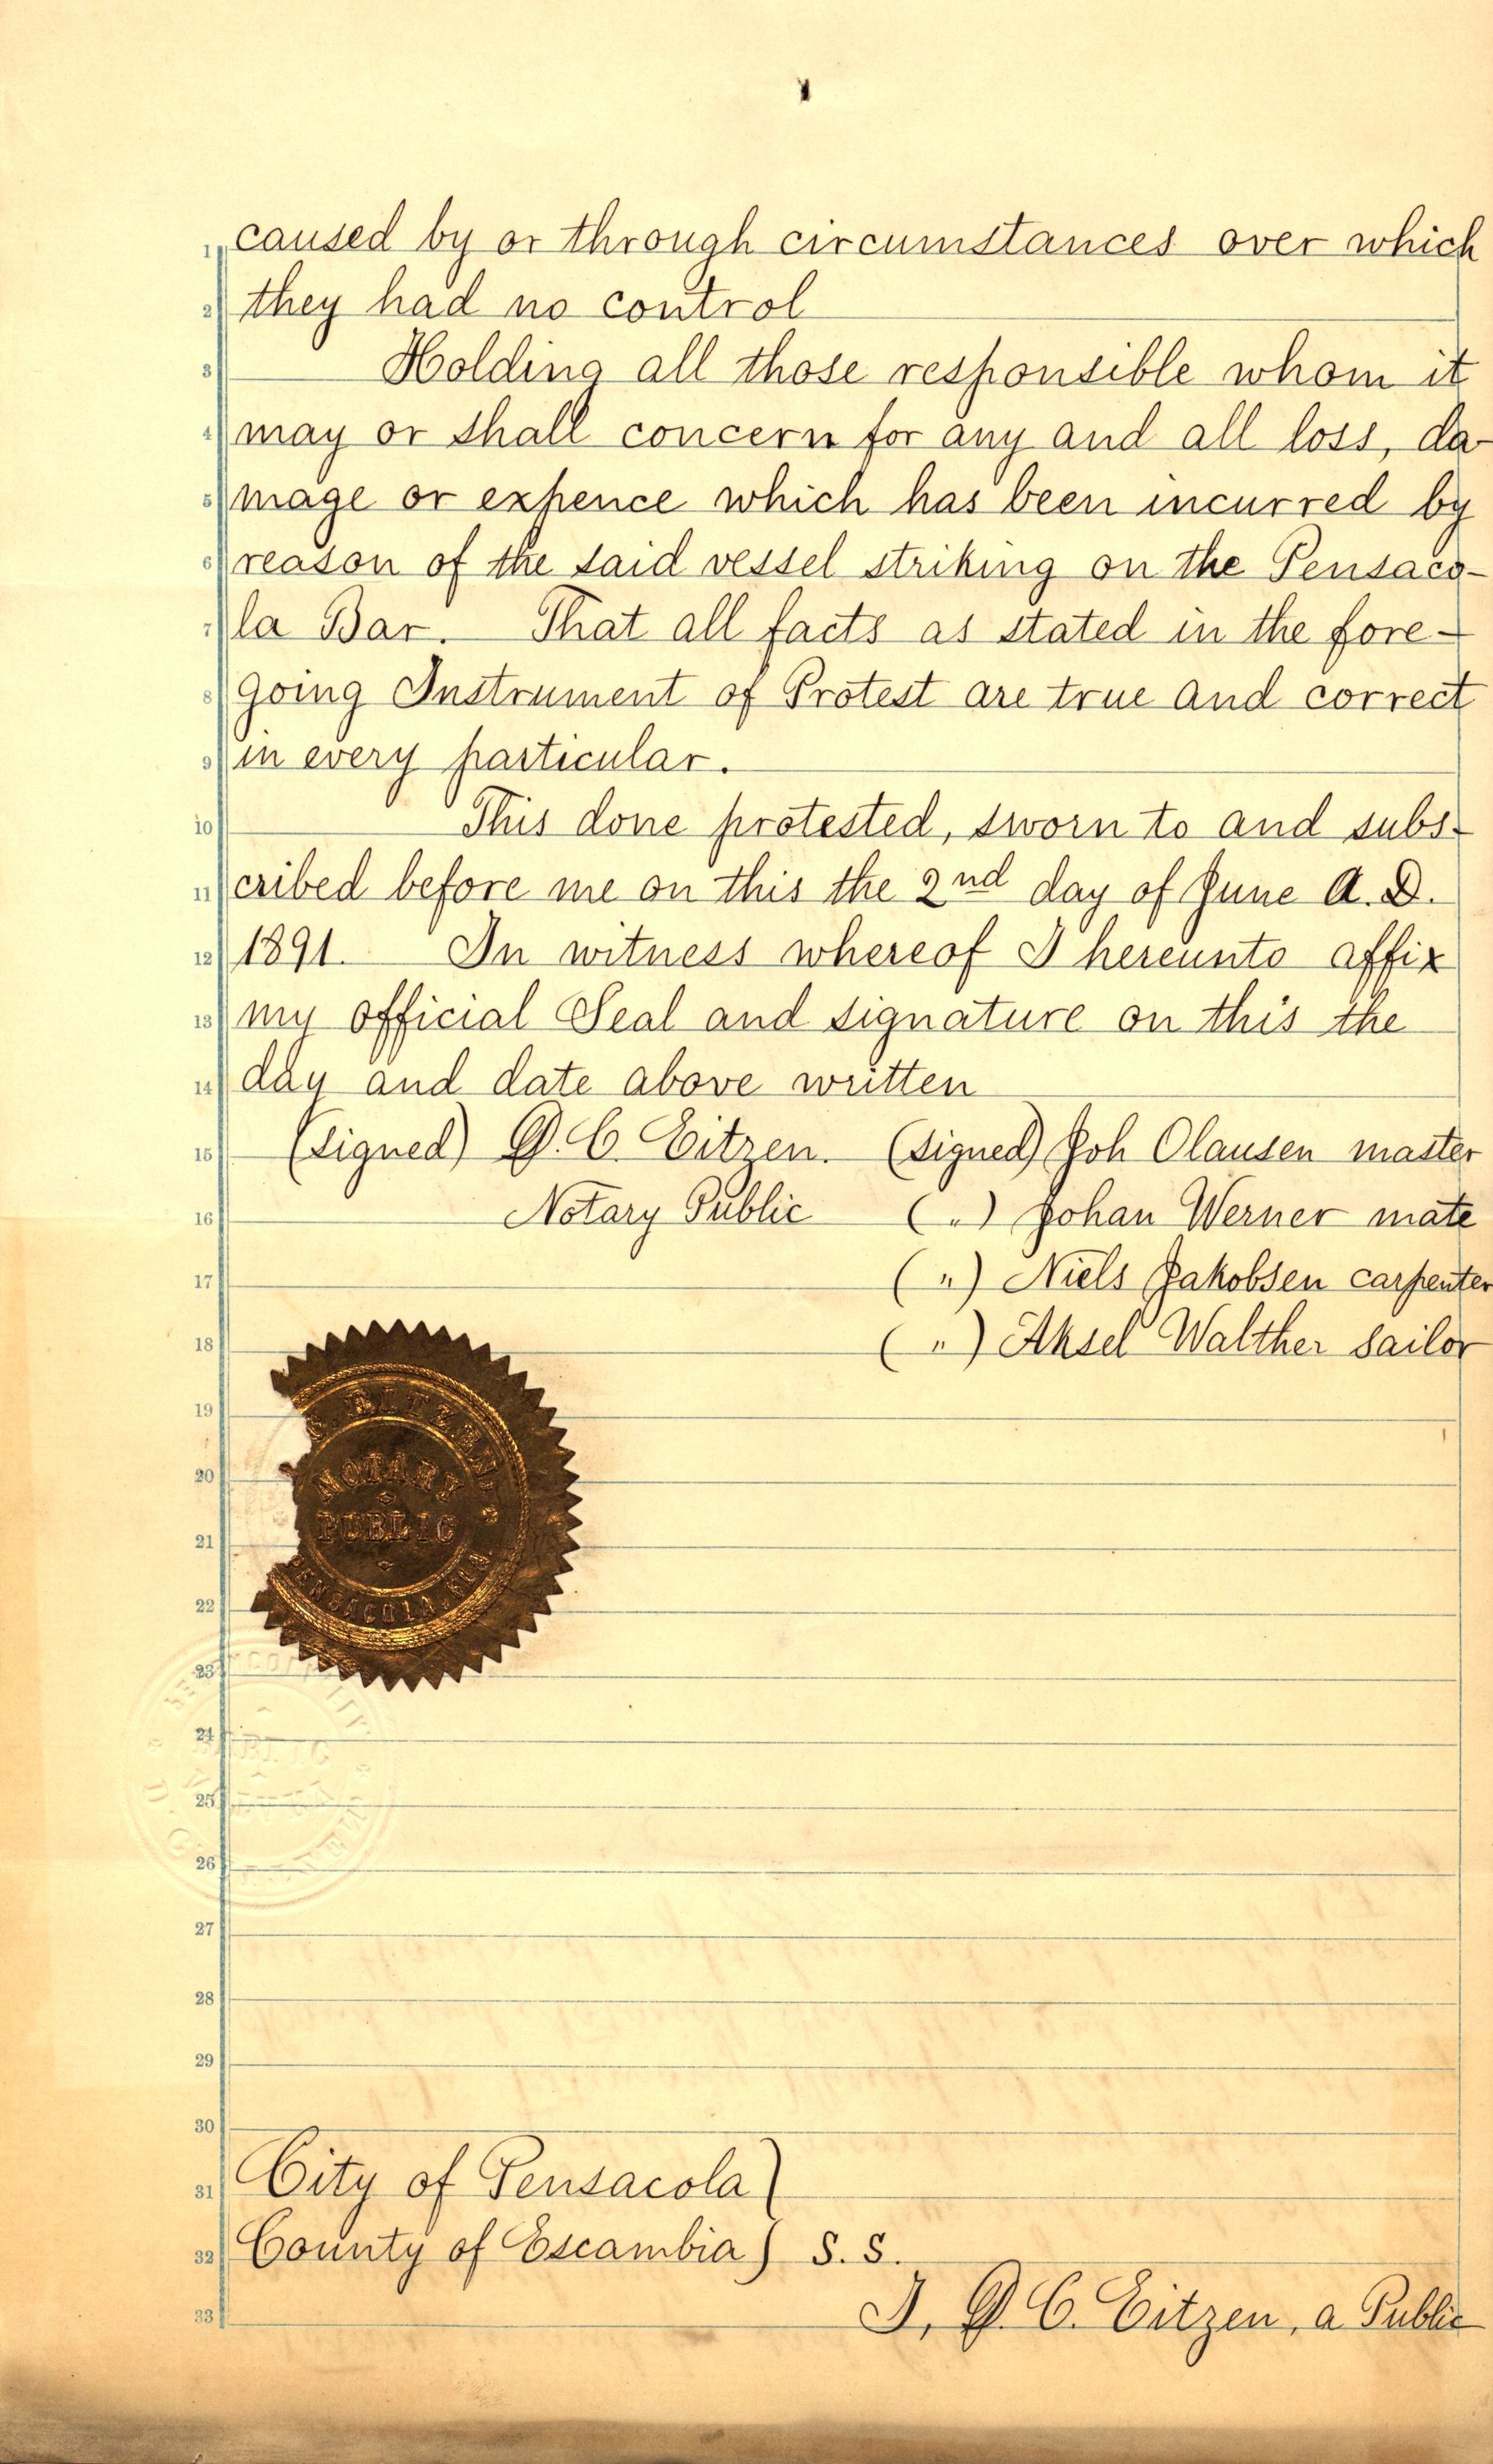 1 caused by or through circumstances over which
2 they had no control
3 Holding all those responsible whom it
4 may or shall concern for any and all loss, da-
5 mage or expence which has been incurred by
6 reason of the said vessel striking on the Pensaco-
7 la Bar. That all facts as stated in the fore-
8 going Instrument of Protest are true and correct
9 in every particular.
10 This done protested, sworn to and subs-
11 cribed before me on this the 2nd day of June A. D.
12 1891. In witness whereof I hereunto affix
13 my official Seal and signature on this the
14 day and date above written
15 (signed) D. C. Eitzen. (signed) Joh Olausen master
16 Notary Public (") Johan Werner mate
17 (") Niels Jakobsen carpenter
18 (") Aksel Walther sailor
19
C. EITZEN.
20
NOTARY
21
PUBLIC
22
PENSACOLA, FLA.
23
24
25
26
27
28
29
30
31 City of Pensacola )
32 County of Escambia ) S. S.
33 I, D. C. Eitzen, a Public